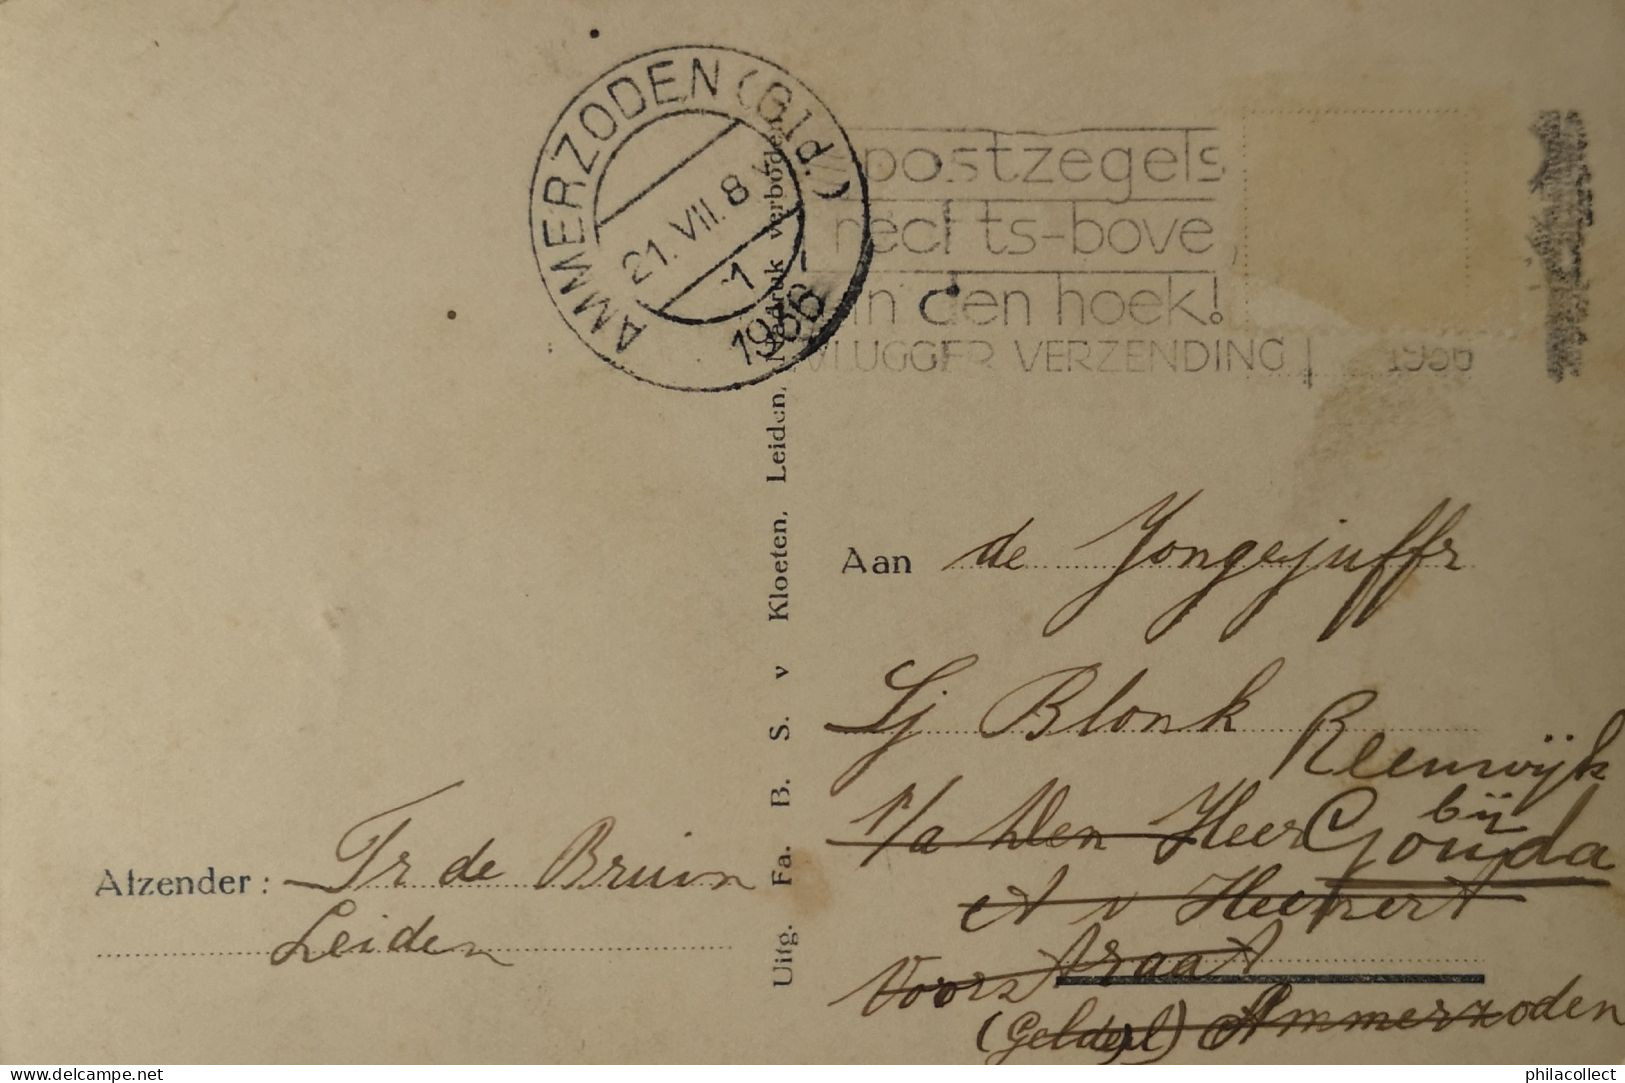 AMMERZODEN (Gld.)
21. VII. 8
1
1936
postzegels
rechts-boven
in den hoek!
VLUGGER VERZENDING
Uitg. Fa. B. S. v Kloeten, Leiden, Nadruk verboden
Aan de Jongejuffr
Lj Blonk
Reeuwijk
p/a Den Heer
bij
Gouda
A v Heemert
Voorstraat
(Gelderl) Ammerzoden
Afzender: Tr de Bruin
Leiden
philacollect
delcampe.net